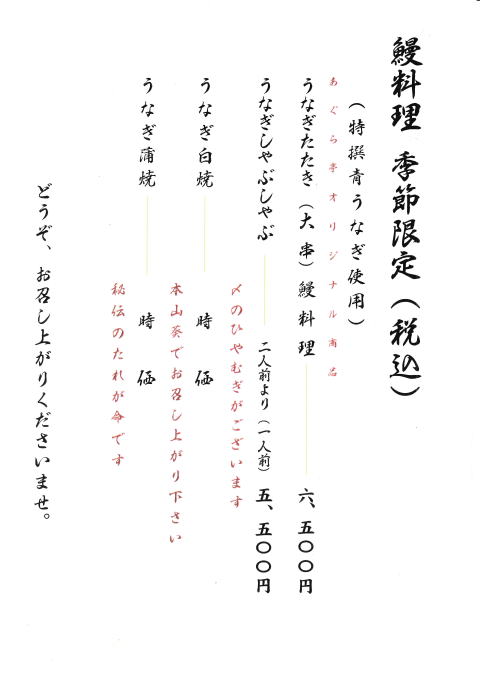 鰻料理 季節限定(税込)
(特撰青うなぎ使用)
あぐら亭オリジナル商品
うなぎたたき(大串)鰻料理 六、五〇〇円
うなぎしゃぶしゃぶ 二人前より(一人前) 五、五〇〇円
〆のひやむぎがございます
うなぎ白焼 時価
本山葵でお召し上がり下さい
うなぎ蒲焼 時価
秘伝のたれが命です
どうぞ、お召し上がりくださいませ。